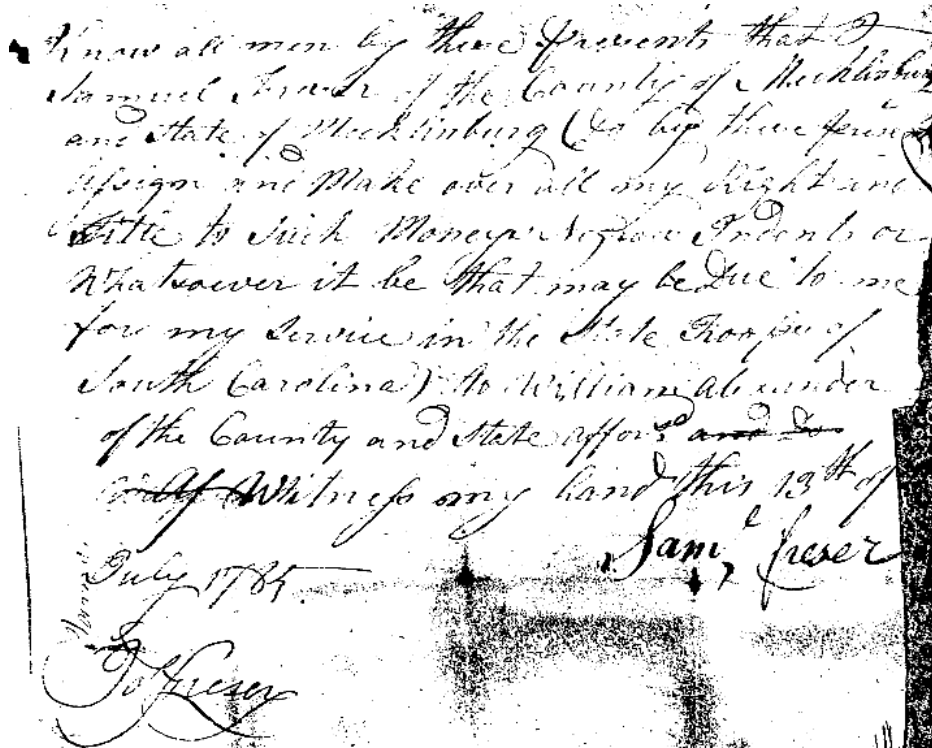 Know all men by these presents that I
Samuel Freser of the County of Mecklinburg
and State of Mecklinburg (do by these
Assign and Make over all my Right and
Title to Such Moneys Negroes Indents or
Whatsoever it be that may be Due to me
for my Service in the State Troops of
South Carolina) to William Alexander
of the County and State affors.d and do
Witness my hand this 13th of
July 1785
Sam.l Freser
Freser